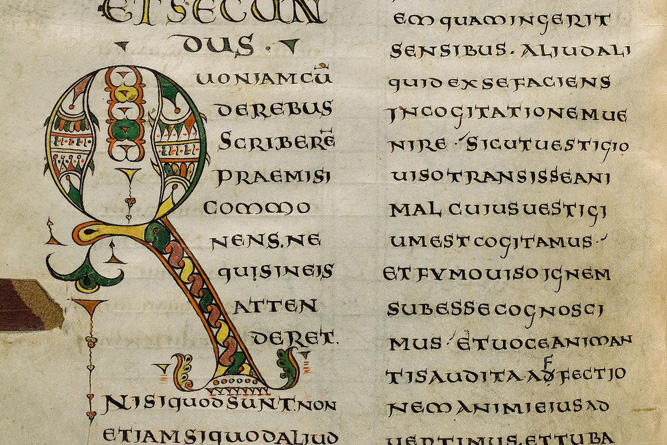 ETSECUN
DUS.
QUONIAMCŪ
DEREBUS
SCRIBERĒ
PRAEMISI
COMMO
NENS.NE
QUISINEIS
ATTEN
DERET.
NISIQUODSUNT.NON
ETIAMSIQUODALIUD
EMQUAMINGERIT
SENSIBUS.ALIUDALI
QUIDEXSEFACIENS
INCOGITATIONEMUE
NIRE.SICUTUESTIGIO
UISOTRANSISSEANI
MALCUIUSUESTIGI
UMESTCOGITAMUS.
ETFUMOUISOIGNEM
SUBESSECOGNOSCI
MUS.ETUOCEANIMAN
TISAUDITAADFFECTIO
NEMANIMIEIUSAD
UERTIMUS.ETTUBA